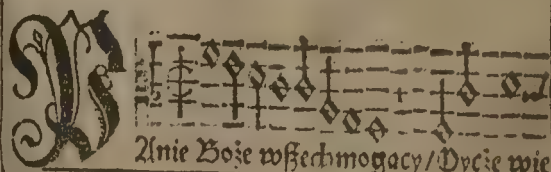 PAnie Boże wßechmogacy/Oycże wie